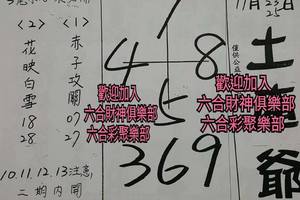 11/23 25
土地爺
僅供公益
<1>
赤子攻關
07
27
<2>
花映白雪
18
28
1
4 8
5
369
歡迎加入
六合財神俱樂部
六合彩聚樂部
歡迎加入
六合財神俱樂部
六合彩聚樂部
10.11.12.13注意
二期內開